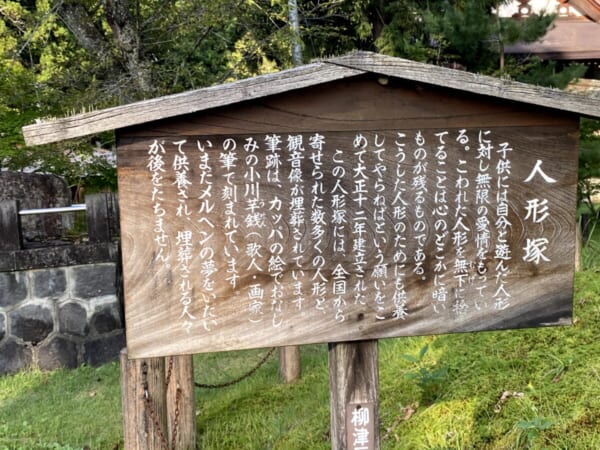 人形塚
子供には自分と遊んだ人形
に対し無限の愛情をもってい
る。こわれた人形を無下に捨
てることは心のどこかに暗い
ものが残るものである。
こうした人形のためにも供養
してやらねばという願いをこ
めて大正十二年建立された
この人形塚には、全国から
寄せられた数多くの人形と、
観音像が埋葬されています
筆跡は、カッパの絵でおなじ
みの小川芋銭(歌人・画家)
の筆で刻まれています。
いまだメルヘンの夢をいだい
て供養され、埋葬される人々
が後をたちません
柳津